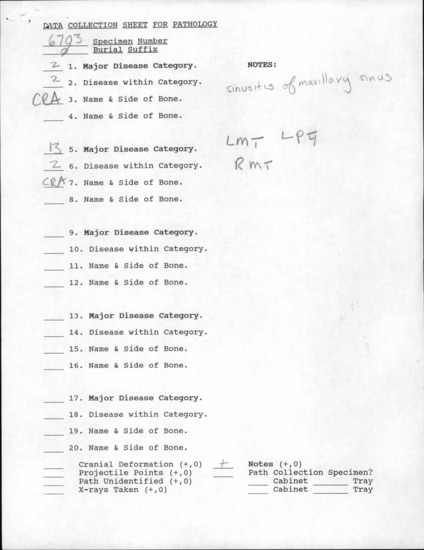 DATA COLLECTION SHEET FOR PATHOLOGY
6703 Specimen Number
Ø Burial Suffix
2 1. Major Disease Category.
NOTES:
2 2. Disease within Category.
sinusitis of maxillary sinus
CRA 3. Name & Side of Bone.
4. Name & Side of Bone.
13 5. Major Disease Category.
LM LP4
2 6. Disease within Category.
RM
CRA 7. Name & Side of Bone.
8. Name & Side of Bone.
9. Major Disease Category.
10. Disease within Category.
11. Name & Side of Bone.
12. Name & Side of Bone.
13. Major Disease Category.
14. Disease within Category.
15. Name & Side of Bone.
16. Name & Side of Bone.
17. Major Disease Category.
18. Disease within Category.
19. Name & Side of Bone.
20. Name & Side of Bone.
Cranial Deformation (+,0)
Projectile Points (+,0)
Path Unidentified (+,0)
X-rays Taken (+,0)
+ Notes (+,0)
Path Collection Specimen?
Cabinet Tray
Cabinet Tray